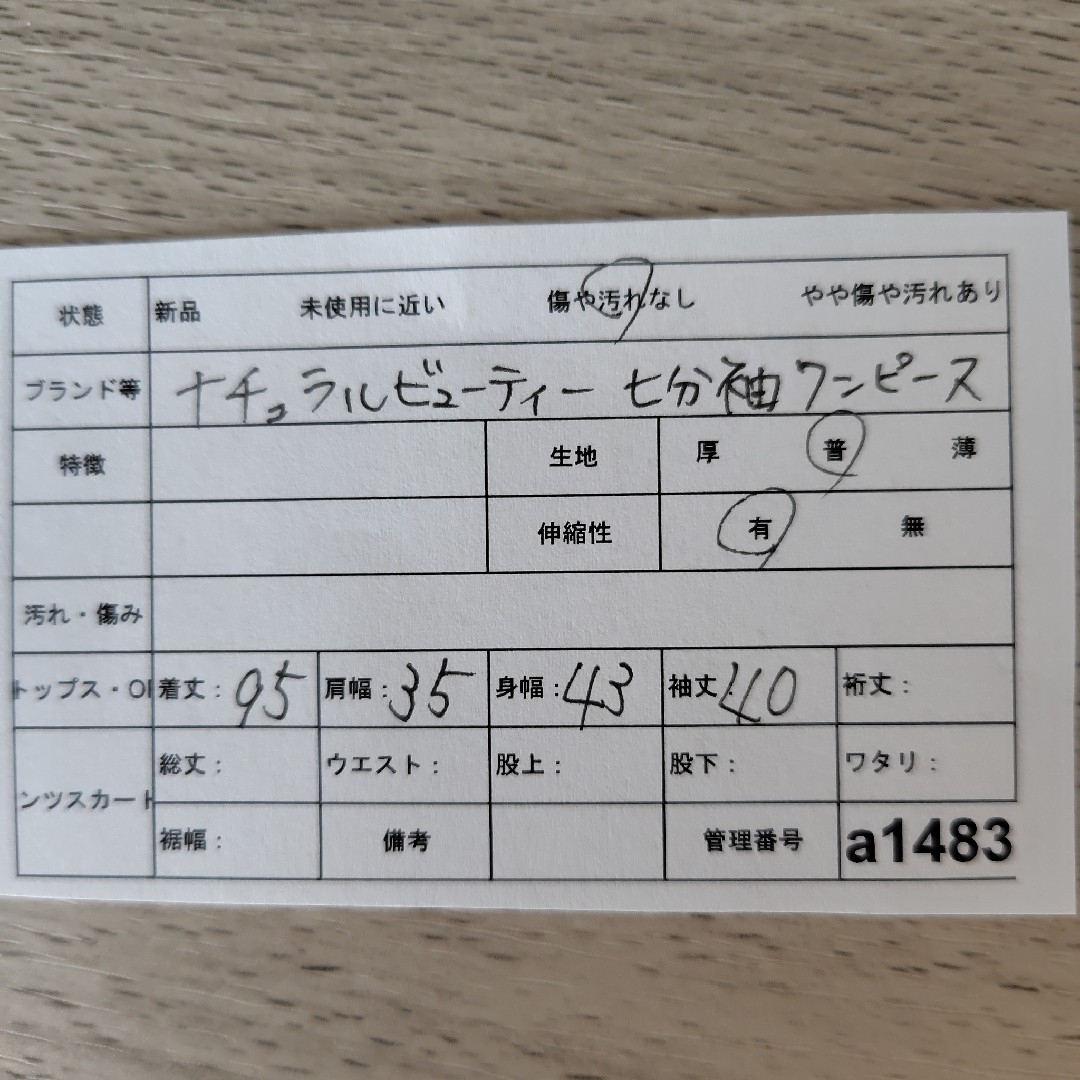 状態 新品 未使用に近い 傷や汚れなし やや傷や汚れあり
ブランド等 ナチュラルビューティー 七分袖ワンピース
特徴 生地 厚 普 薄
伸縮性 有 無
汚れ・傷み
トップス・O 着丈：95 肩幅：35 身幅：43 袖丈：40 裄丈：
総丈： ウエスト： 股上： 股下： ワタリ：
ンツスカート
裾幅： 備考 管理番号 a1483